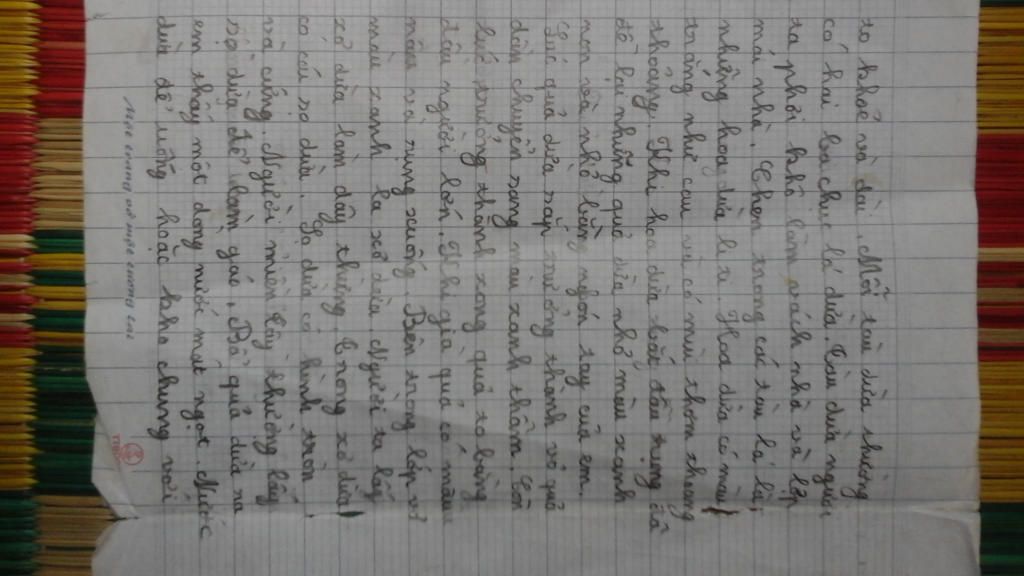 to khoẻ và dài. Mỗi tàu dừa thường
có hai ba chục lá dừa. Tàu dừa người
ta phơi khô làm vách nhà và lợp
mái nhà. Chen trong các tàu lá là
những hoa dừa li ti. Hoa dừa có màu
trắng như cau và có mùi thơm thoang
thoảng. Khi hoa dừa bắt đầu rụng để
để lại những quả dừa nhỏ màu xanh
non và nhỏ bằng ngón tay của em.
Lúc quả dừa sắp trưởng thành vỏ quả
dần chuyển sang màu xanh thẫm. Còn
lúc trưởng thành xong quả to bằng
đầu người lớn. Khi già quả có màu
nâu và rụng xuống. Bên trong lớp vỏ
màu xanh là xơ dừa. Người ta lấy
xơ dừa làm dây thừng. Trong xơ dừa
có cái sọ dừa. Sọ dừa có hình tròn
và cứng. Người miền này thường lấy
sọ dừa để làm gáo. Bổ quả dừa ra
em thấy một dòng nước mát ngọt. Nước
dừa để uống hoặc kho chung với